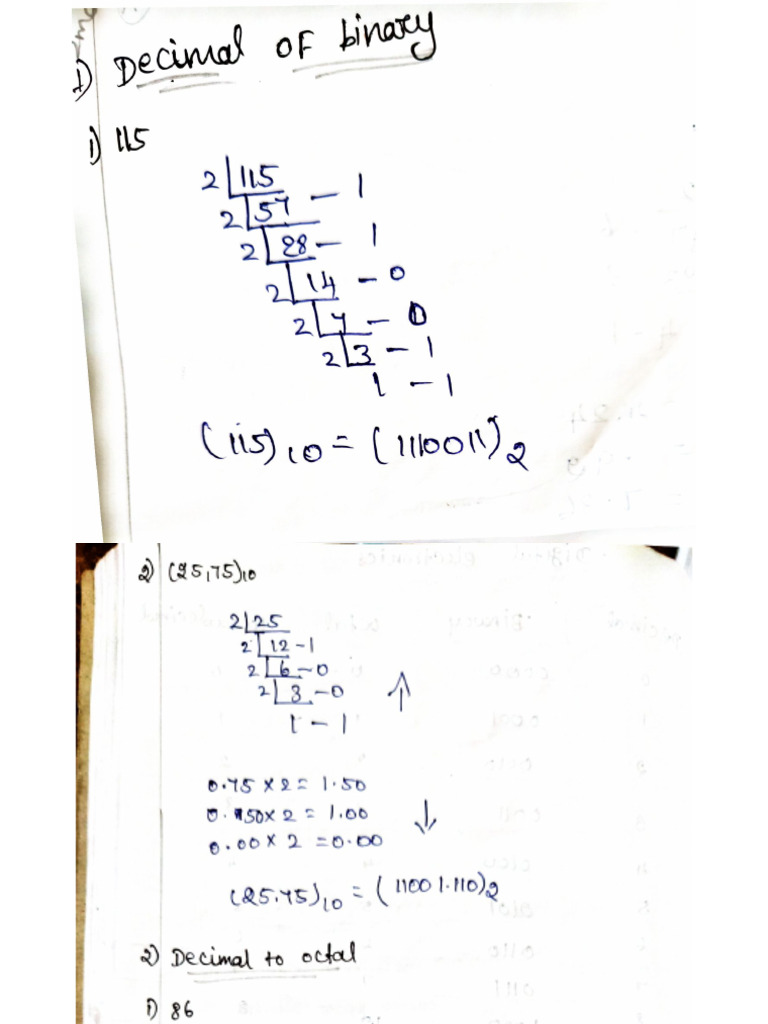 1) Decimal OF binary
i) 115
2 115
2 57 - 1
2 28 - 1
2 14 - 0
2 7 - 0
2 3 - 1
1 - 1
(115)10 = (1110011)2
2) (25,75)10
2 25
2 12 - 1
2 6 - 0
2 3 - 0
1 - 1
0.75 × 2 = 1.50
0.50 × 2 = 1.00
0.00 × 2 = 0.00
(25.75)10 = (11001.110)2
2) Decimal to octal
i) 86